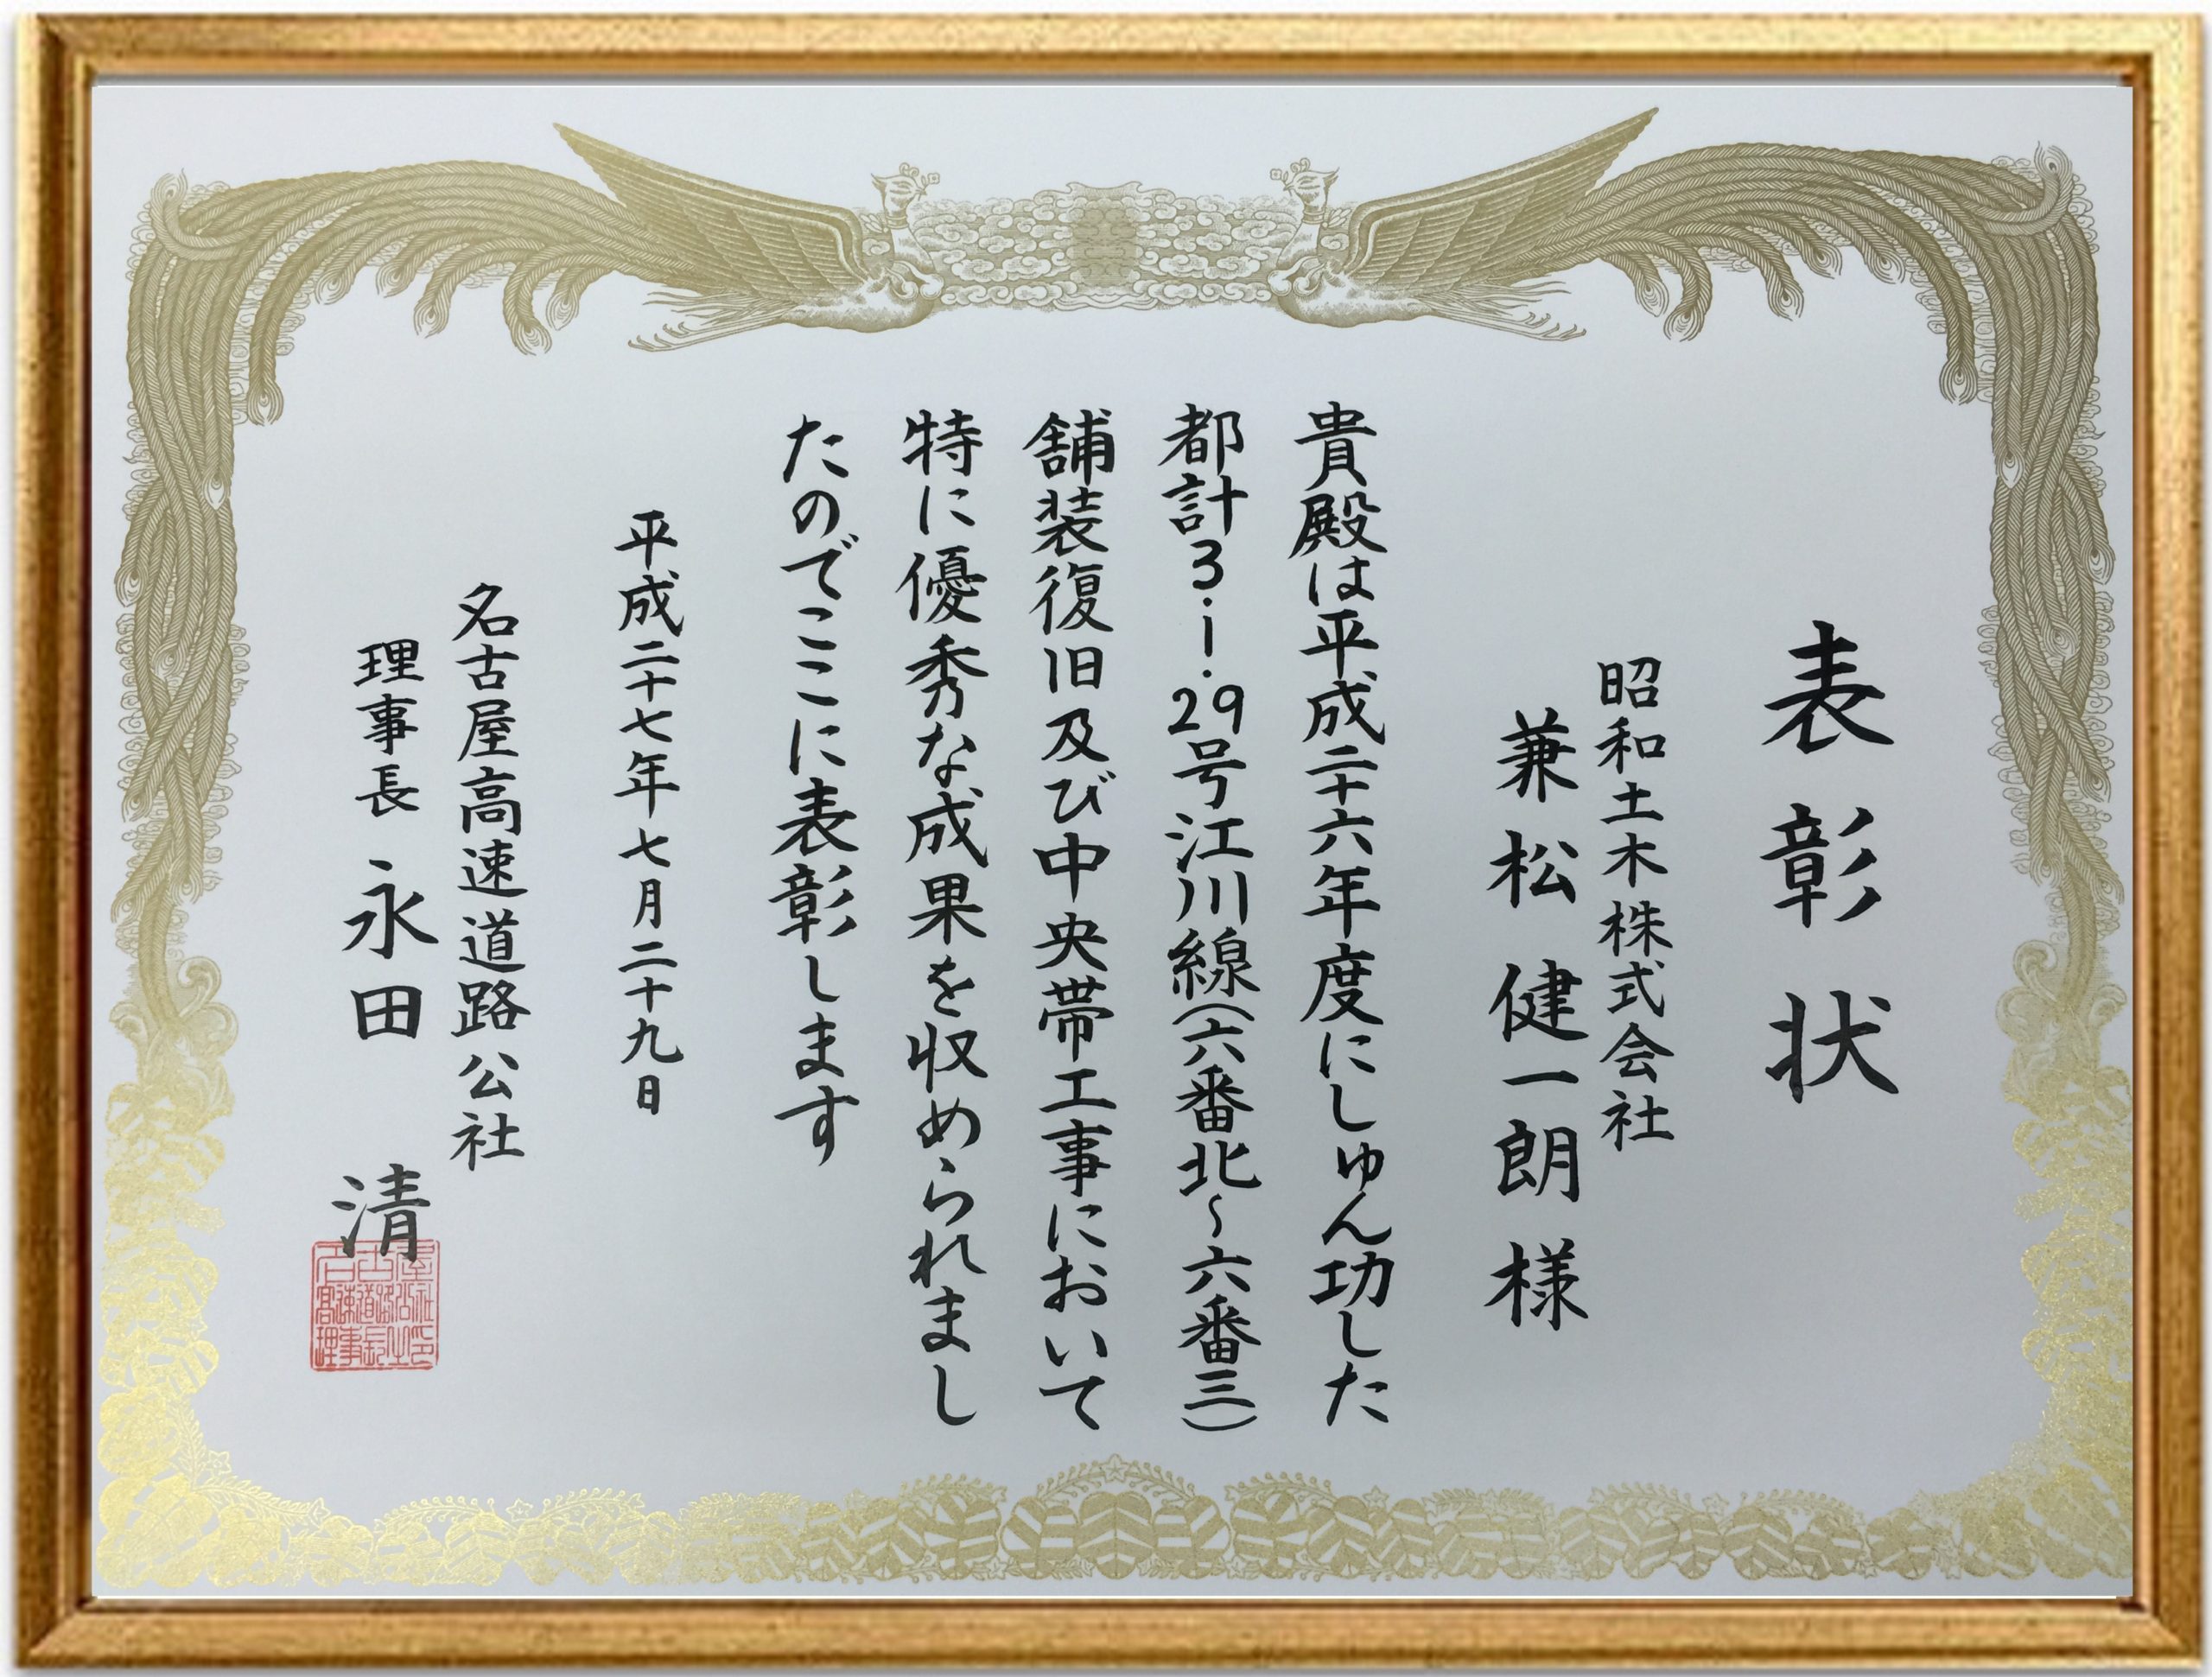 表彰状
昭和土木株式会社
兼松健一朗様
貴殿は平成二十六年度にしゅん功した
都計3・i・29号江川線(六番北~六番三)
舗装復旧及び中央帯工事において
特に優秀な成果を収められまし
たのでここに表彰します
平成二十七年七月二十九日
名古屋高速道路公社
理事長 永田 清
名古屋
高速道路公社
理事長之印